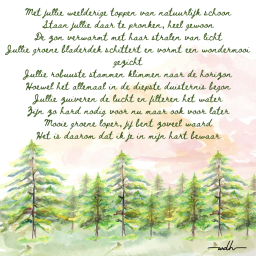 Met jullie weelderige toppen van natuurlijk schoon
Staan jullie daar te pronken, heel gewoon
De zon verwarmt met haar stralen van licht
Jullie groene bladerdek schittert en vormt een wondermooi
gezicht
Jullie robuuste stammen klimmen naar de horizon
Hoewel het allemaal in de diepste duisternis begon
Jullie zuiveren de lucht en filteren het water
Zijn zo hard nodig voor nu maar ook voor later
Mooie groene loper, jij bent zoveel waard
Het is daarom dat ik je in mijn hart bewaar
wdh